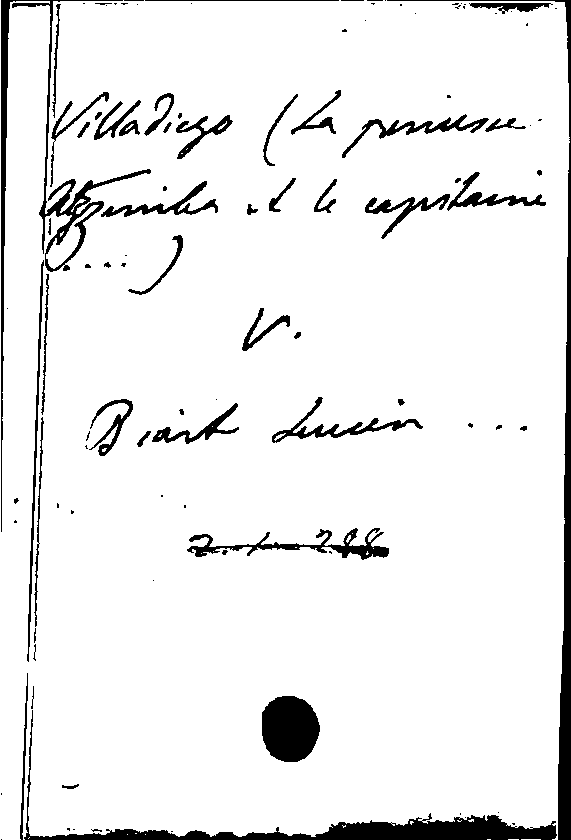 Villadiego (La princesse
Atzimba et le capitaine
....)
V.
Biart Lucien ...